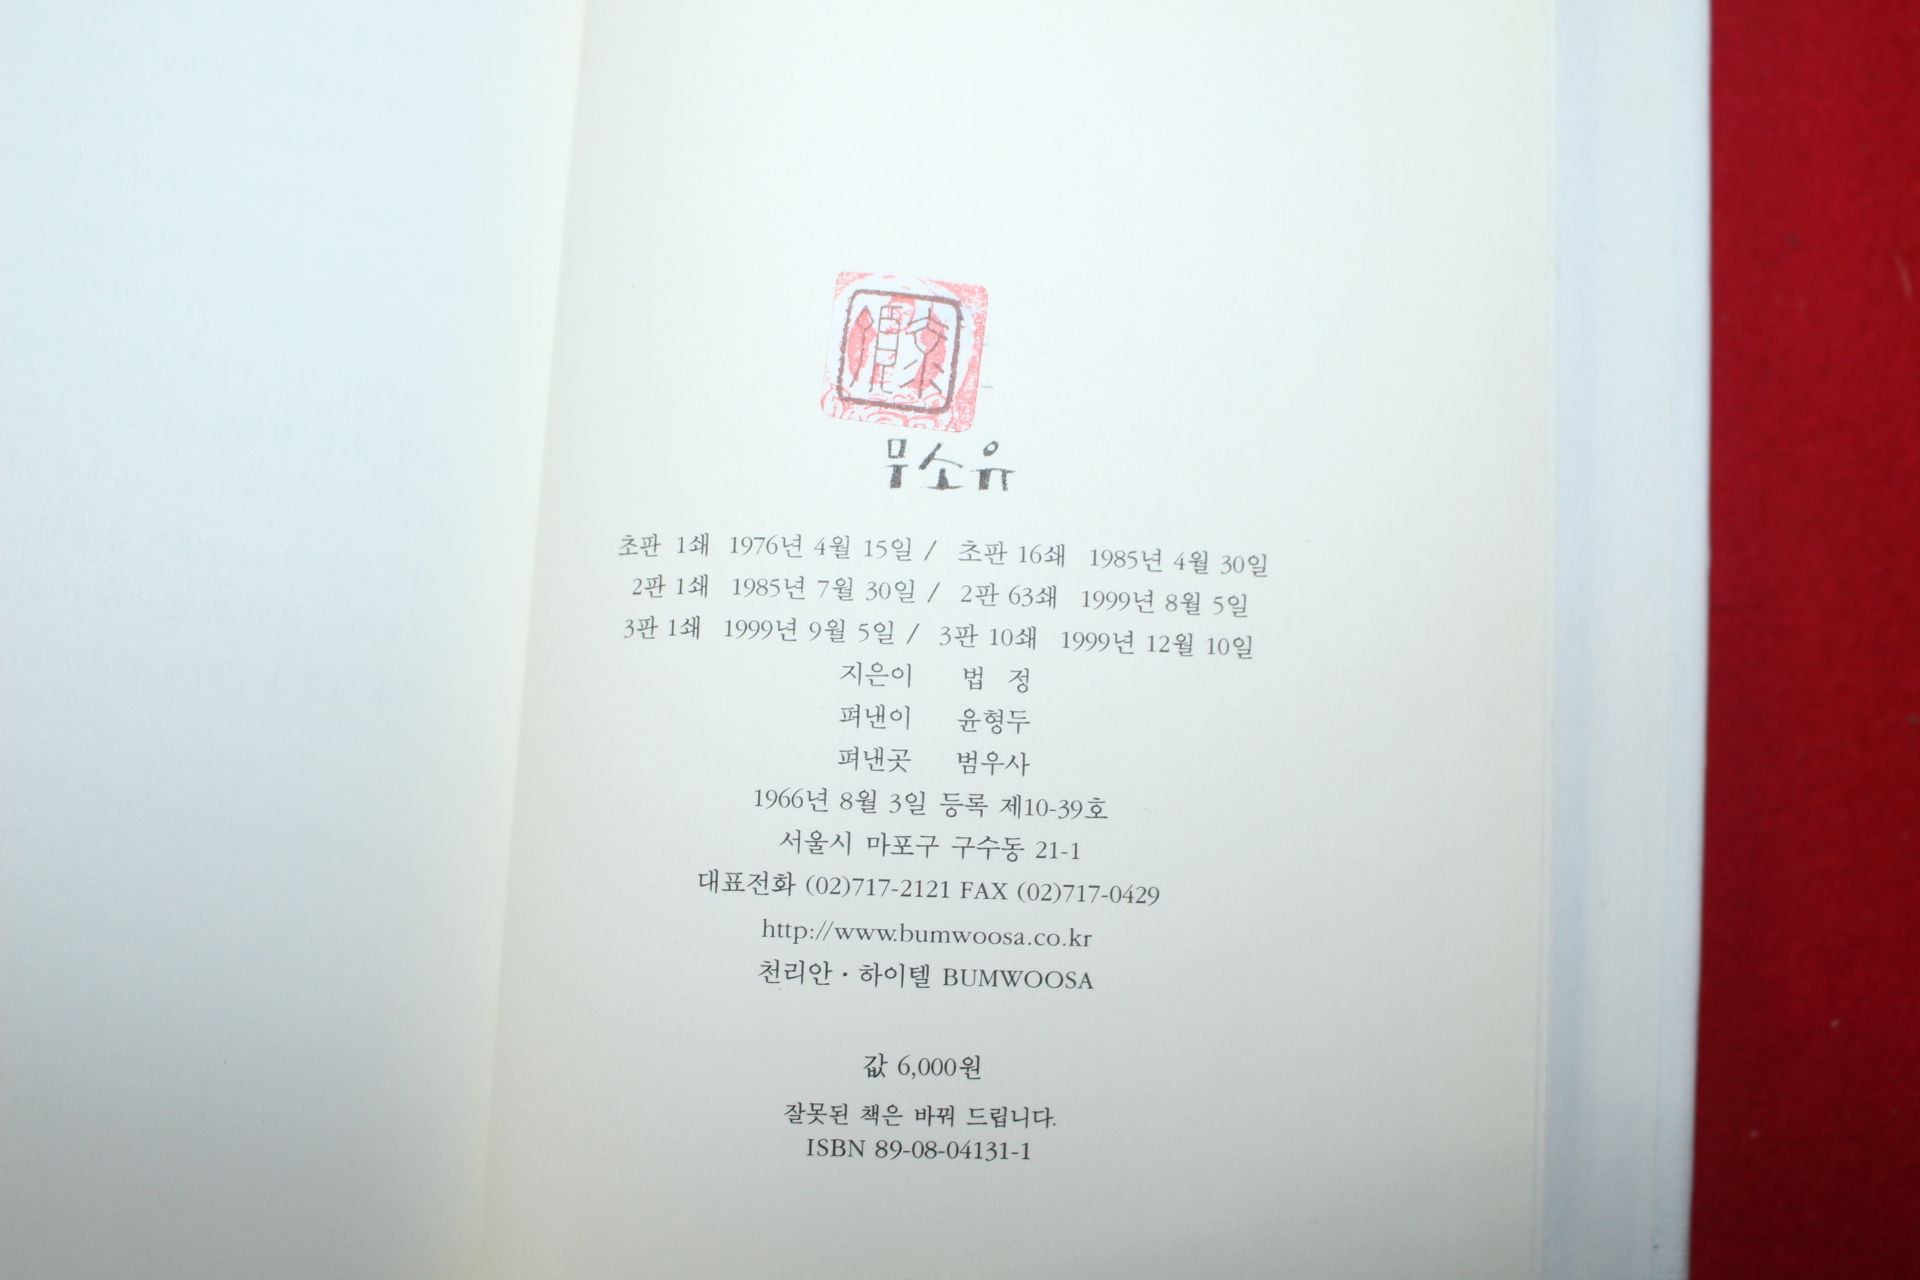 무소유
초판 1쇄 1976년 4월 15일 / 초판 16쇄 1985년 4월 30일
2판 1쇄 1985년 7월 30일 / 2판 63쇄 1999년 8월 5일
3판 1쇄 1999년 9월 5일 / 3판 10쇄 1999년 12월 10일
지은이 법 정
펴낸이 윤형두
펴낸곳 범우사
1966년 8월 3일 등록 제10-39호
서울시 마포구 구수동 21-1
대표전화 (02)717-2121 FAX (02)717-0429
http://www.bumwoosa.co.kr
천리안·하이텔 BUMWOOSA
값 6,000원
잘못된 책은 바꿔 드립니다.
ISBN 89-08-04131-1